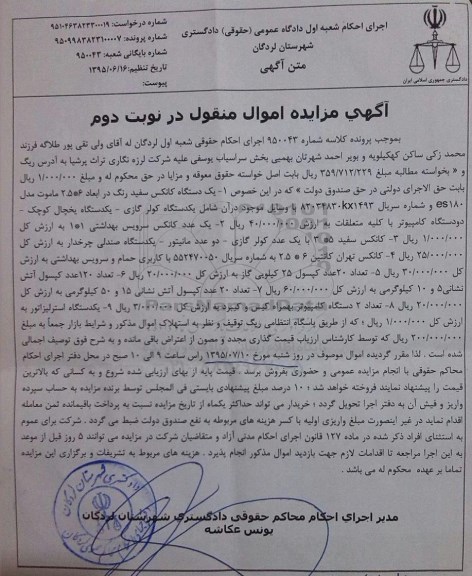 شماره درخواست: ۹۵۱۰۴۶۳۸۲۳۳۰۰۰۱۹
شماره پرونده: ۹۵۰۹۹۸۳۸۲۳۱۰۰۰۰۷
شماره بایگانی شعبه: ۹۵۰۰۴۳
تاریخ تنظیم: ۱۳۹۵/۰۶/۱۶
پیوست:
اجرای احکام شعبه اول دادگاه عمومی (حقوقی) دادگستری
شهرستان لردگان
متن آگهی
دادگستری جمهوری اسلامی ایران
آگهي مزايده اموال منقول در نوبت دوم
بموجب پرونده کلاسه شماره ۹۵۰۰۴۳ اجرای احکام حقوقی شعبه اول لردگان له آقای ولی تقی پور طلاگه فرزند
محمد زکی ساکن کهکیلویه و بویر احمد شهرتان بهمیی بخش سراسیاب یوسفی علیه شرکت لرزه نگاری ترات پرشیا به آدرس ریگ
و « بخواسته مطالبه مبلغ ۳۵۹/۷۱۲/۲۲۹ ریال بابت اصل خواسته حقوق معوقه و مزایا در حق محکوم له و مبلغ ۱/۰۰۰/۰۰۰ ریال
بابت حق الاجرای دولتی در حق صندوق دولت » که در این خصوص ۱- یک دستگاه کانکس سفید رنگ در ابعاد ۶*۲.۵ ماموت مدل
es۱۸۰ و شماره سریال ۸۲۰۲۴۸۲۰kx۱۴۹۳ با وسایل موجود درآن شامل یکدستگاه کولر گازی - یکدستگاه یخچال کوچک -
دودستگاه کامپیوتر با کلیه متعلقات به ارزش ۴۰/۰۰۰/۰۰۰ ریال ۲- یک عدد کانکس سرویس بهداشتی ۱*۱ به ارزش کل
۱/۰۰۰/۰۰۰ ریال ۳- کانکس سفید ۵*۳ با یک عدد کولر گازی - دو عدد مانیتور - یکدستگاه صندلی چرخدار به ارزش کل
۲۵/۰۰۰/۰۰۰ ریال ۴- کانکس تهران کانتین ۶*۲.۵ به شماره سریال ۵۵۲۴۷۰۰۵۰ با کاربری حمام و سرویس بهداشتی به ارزش
کل ۳۰/۰۰۰/۰۰۰ ریال ۵- تعداد ۲۰عدد کپسول ۲۵ کیلویی گاز به ارزش کل ۲۰/۰۰۰/۰۰۰ ریال ۶- تعداد ۱۲۰عدد کپسول آتش
نشانی۵ و ۱۰ کیلوگرمی به ارزش کل ۶۰/۰۰۰/۰۰۰ ریال ۷- تعداد ۲۰ عدد کپسول آتش نشانی ۱۵ و ۵۰ کیلوگرمی به ارزش کل
۲۰/۰۰۰/۰۰۰ ریال ۸- تعداد ۲ دستگاه کامپیوتر بهمراه کیس و کیبرد به ارزش کل ۳/۰۰۰/۰۰۰ ریال ۹- یکدستگاه استرلیزاتور به
ارزش کل ۱/۰۰۰/۰۰۰ ریال ؛ که از طریق پاسگاه انتظامی ریگ توقیف و نظر به استهلاک اموال مذکور و شرایط بازار جمعاً به مبلغ
۲۰۰/۰۰۰/۰۰۰ ریال که توسط کارشناس ارزیاب قیمت گذاری مجدد و مصون از اعتراض باقی مانده و به شرح فوق توصیف اجمالی
شده است . لذا مقرر گردیده اموال موصوف در روز شنبه مورخ ۱۳۹۵/۰۷/۱۰ راس ساعت ۹ الی ۱۰ صبح در محل دفتر اجرای احکام
محاکم حقوقی با انجام مزایده عمومی و حضوری بفروش برسد . قیمت پایه از بهای ارزیابی شده شروع و به کسانی که بالاترین
قیمت را پیشنهاد نمایند فروخته خواهد شد ؛ ۱۰ درصد مبلغ پیشنهادی بایستی فی المجلس توسط برنده مزایده به حساب سپرده
واریز و فیش آن به دفتر اجرا تحویل گردد ؛ خریدار می تواند حداکثر یکماه از تاریخ مزایده نسبت به پرداخت باقیمانده ثمن معامله
اقدام نماید در غیر اینصورت مبلغ واریزی اولیه با کسر هزینه های مربوطه به نفع صندوق دولت ضبط می گردد . شرکت برای عموم
به استثنای افراد ذکر شده در ماده ۱۲۷ قانون اجرای احکام مدنی آزاد و متقاضیان شرکت در مزایده می توانند ۵ روز قبل از موعد
به این اجرا مراجعه تا اقدامات لازم جهت بازدید اموال مذکور انجام پذیرد . هزینه های مربوط به تشریفات و برگزاری این مزایده
تماما بر عهده محکوم له می باشد .
مدیر اجرای احکام محاکم حقوقی دادگستری شهرستان لردگان
یونس عکاشه